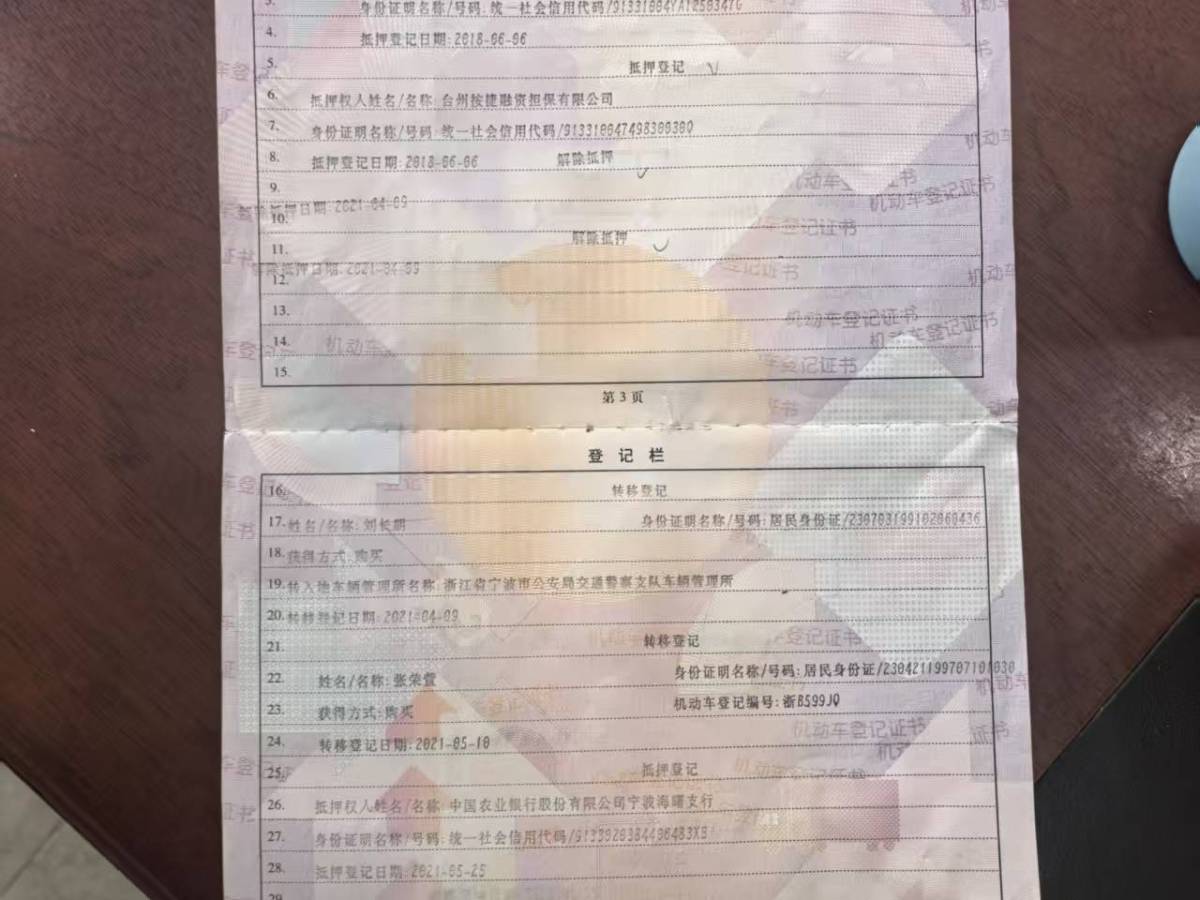 3. 身份证明名称/号码:统一社会信用代码/91331004YA1250347G
4. 抵押登记日期:2018-06-06
5. 抵押登记
6. 抵押权人姓名/名称:台州按捷融资担保有限公司
7. 身份证明名称/号码:统一社会信用代码/91331004749830938Q
8. 抵押登记日期:2018-06-06 解除抵押
9.
解除抵押日期:2021-04-09
10.
11. 解除抵押
解除抵押日期:2021-04-09
12.
13.
14.
15.
第3页
登记栏
16. 转移登记
17. 姓名/名称:刘长明 身份证明名称/号码:居民身份证/230703199102060436
18. 获得方式:购买
19. 转入地车辆管理所名称:浙江省宁波市公安局交通警察支队车辆管理所
20. 转移登记日期:2021-04-09
21. 转移登记
22. 姓名/名称:张荣萱 身份证明名称/号码:居民身份证/230421199707101030
23. 获得方式:购买 机动车登记编号:浙B599JQ
24. 转移登记日期:2021-05-10
25. 抵押登记
26. 抵押权人姓名/名称:中国农业银行股份有限公司宁波海曙支行
27. 身份证明名称/号码:统一社会信用代码/9133020384406483XB
28. 抵押登记日期:2021-05-25
29.